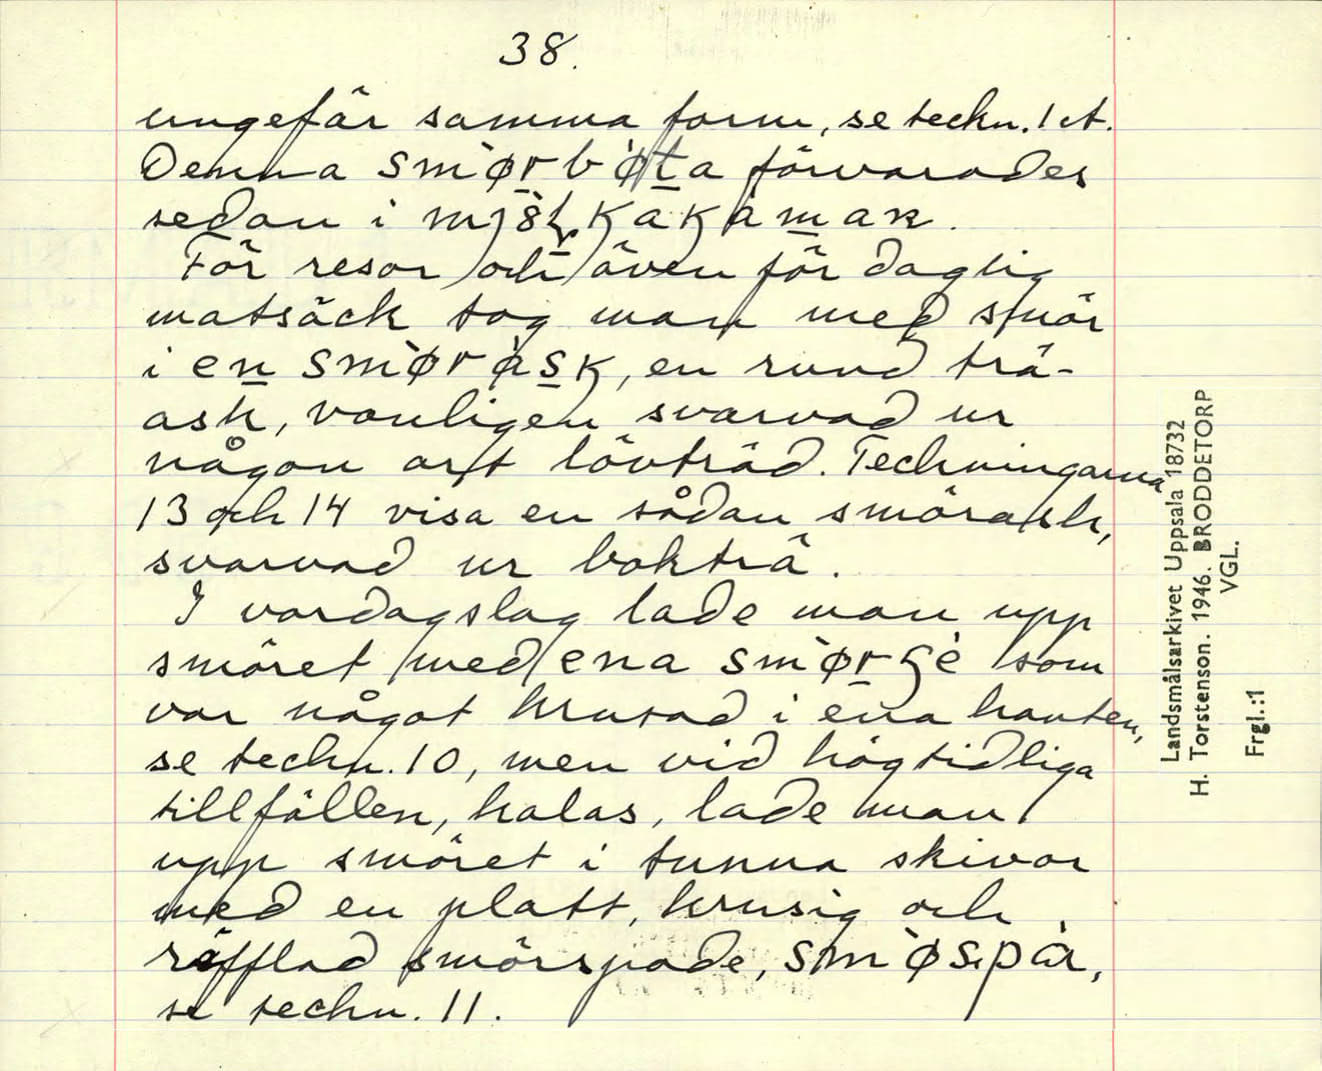 38.
ungefär samma form, se teckn. 1 A.
Denna smørbøta förvarades
sedan i mjölkakamar.
För resor och även för daglig
matsäck tog man med smör
i en smørask, en rund trä-
ask, vanligen svarvad ur
någon art lövträd. Teckningarna
13 och 14 visa en sådan smörask,
svarvad ur bokträ.
I vardagslag lade man upp
smöret med ena smør som
var något krusad i ena kanten,
se teckn. 10, men vid högtidliga
tillfällen, kalas, lade man
upp smöret i tunna skivor
med en platt, krusig och
räfflad smörspade, smøspar,
se teckn. 11.
Landsmålsarkivet Uppsala 18732
H. Torstenson. 1946. BRODDETORP
VGL.
Frgl.:1